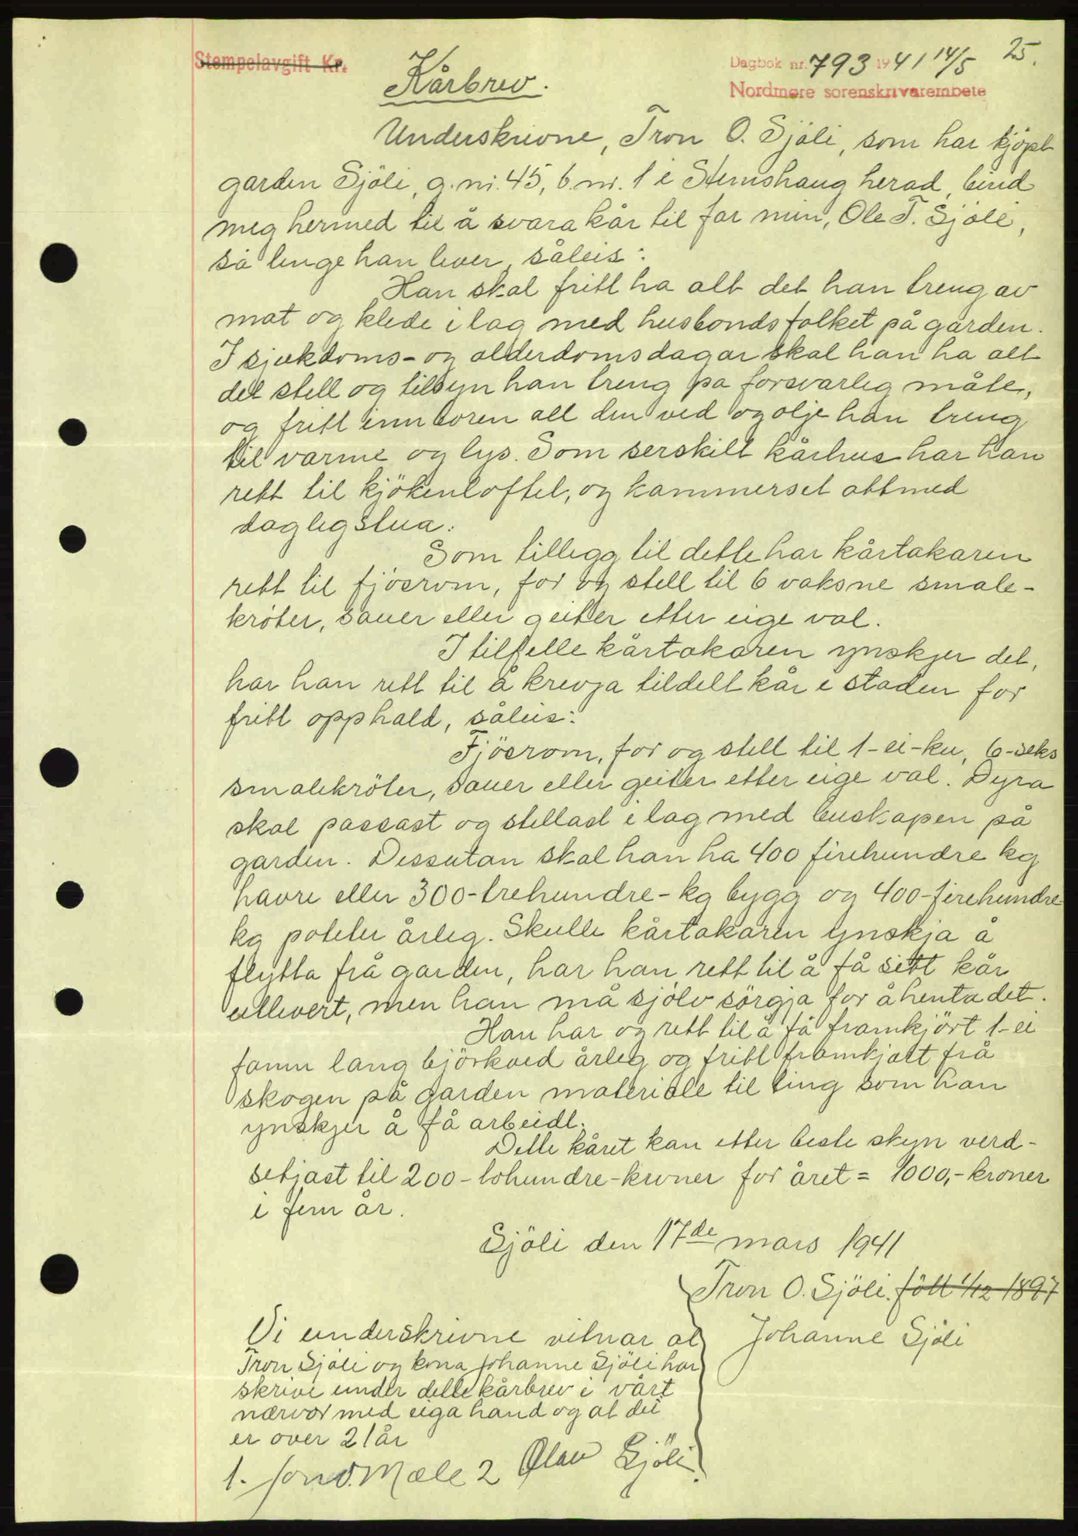 25.
Stempelavgift Kr.
Dagbok nr. 793 1941 14/5
Nordmøre sorenskrivarembete
Kårbrev.
Underskrivne, Tron O. Sjöli, som har kjöpt
garden Sjöli, g.nr. 45, b.nr. 1 i Stemshaug herad, bind
meg hermed til å svara kår til far min, Ole T. Sjöli,
så lenge han lever, såleis:
Han skal fritt ha alt det han treng av
mat og klede i lag med husbondsfolket på garden.
I sjukdoms- og alderdomsdagar skal han ha alt
det stell og tilsyn han treng på forsvarleg måte,
og fritt innboren all den ved og olje han treng
til varme og lys. Som serskilt kårhus har han
rett til kjökenloftet, og kammerset attmed
daglegstua.
Som tillegg til dette har kårtakaren
rett til fjösrom, for og stell til 6 vaksne smale-
kröter, sauer eller geiter etter eige val.
I tilfelle kårtakaren ynskjer det,
har han rett til å krevja tildelt kår i staden for
fritt opphald, såleis:
Fjösrom, for og stell til 1-ei-ku, 6-seks
smalekröter, sauer eller geiter etter eige val. Dyra
skal passast og stellast i lag med buskapen på
garden. Dessutan skal han ha 400 firehundre kg
havre eller 300-trehundre-kg bygg og 400-firehundre-
kg poteter årleg. Skulle kårtakaren ynskja å
flytta frå garden, har han rett til å få sitt kår
utlevert, men han må sjölv sörgja for å henta det.
Han har og rett til å få framkjört 1-ei
famn lang björkved årleg og fritt framkjört frå
skogen på garden materiale til ting som han
ynskjer å få arbeidt.
Dette kåret kan etter beste skyn verd-
setjast til 200-tohundre-kroner for året = 1000,- kroner
i fem år.
Sjöli den 17de mars 1941
Tron O. Sjöli. född 1/12 1897
Johanne Sjöli
Vi underskrivne vitnar at
Tron Sjöli og kona Johanne Sjöli har
skrive under dette kårbrev i vårt
nærvær med eiga hand og at dei
er over 21 år
1. Jon O. Mæle 2 Olav Sjöli.